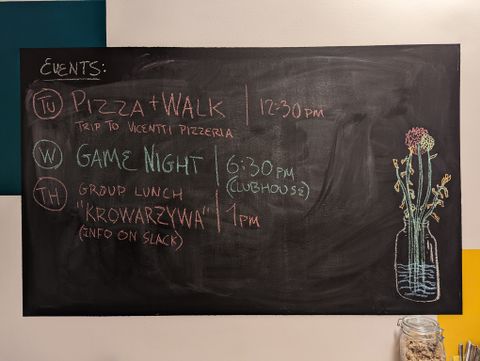 EVENTS:
TU PIZZA + WALK | 12:30 PM
TRIP TO VICENTTI PIZZERIA
W GAME NIGHT | 6:30 PM
(CLUBHOUSE)
TH GROUP LUNCH
"KROWARZYWA" | 1 PM
(INFO ON SLACK)